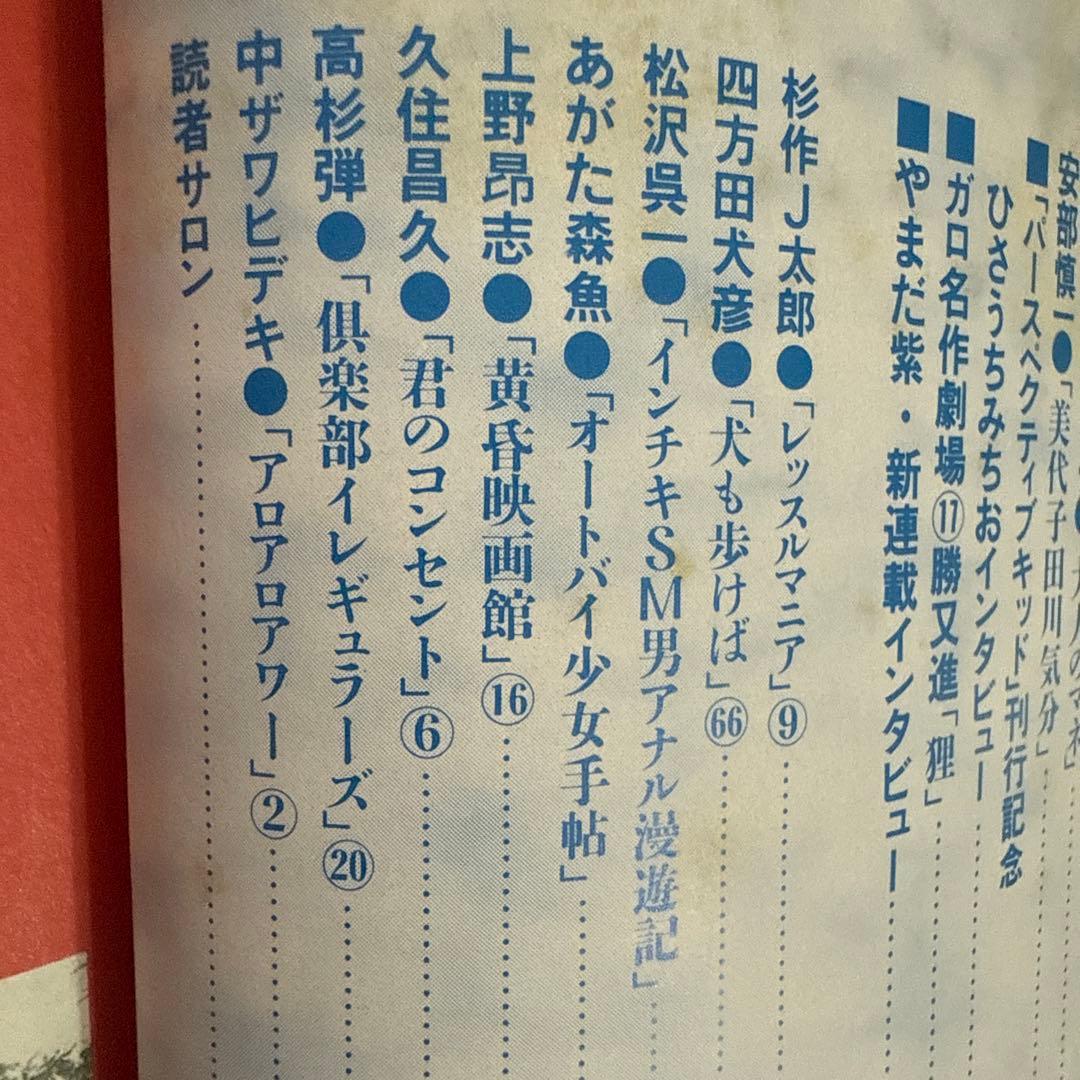 安部慎一●「美代子田川気分」
■「パースペクティブキッド」刊行記念
ひさうちみちおインタビュー
■ガロ名作劇場⑪勝又進「狸」
■やまだ紫・新連載インタビュー
杉作J太郎●「レッスルマニア」⑨
四方田犬彦●「犬も歩けば」66
松沢呉一●「インチキSM男アナル漫遊記」
あがた森魚●「オートバイ少女手帖」
上野昂志●「黄昏映画館」⑯
久住昌久●「君のコンセント」⑥
高杉弾●「倶楽部イレギュラーズ」⑳
中ザワヒデキ●「アロアロアワー」②
読者サロン